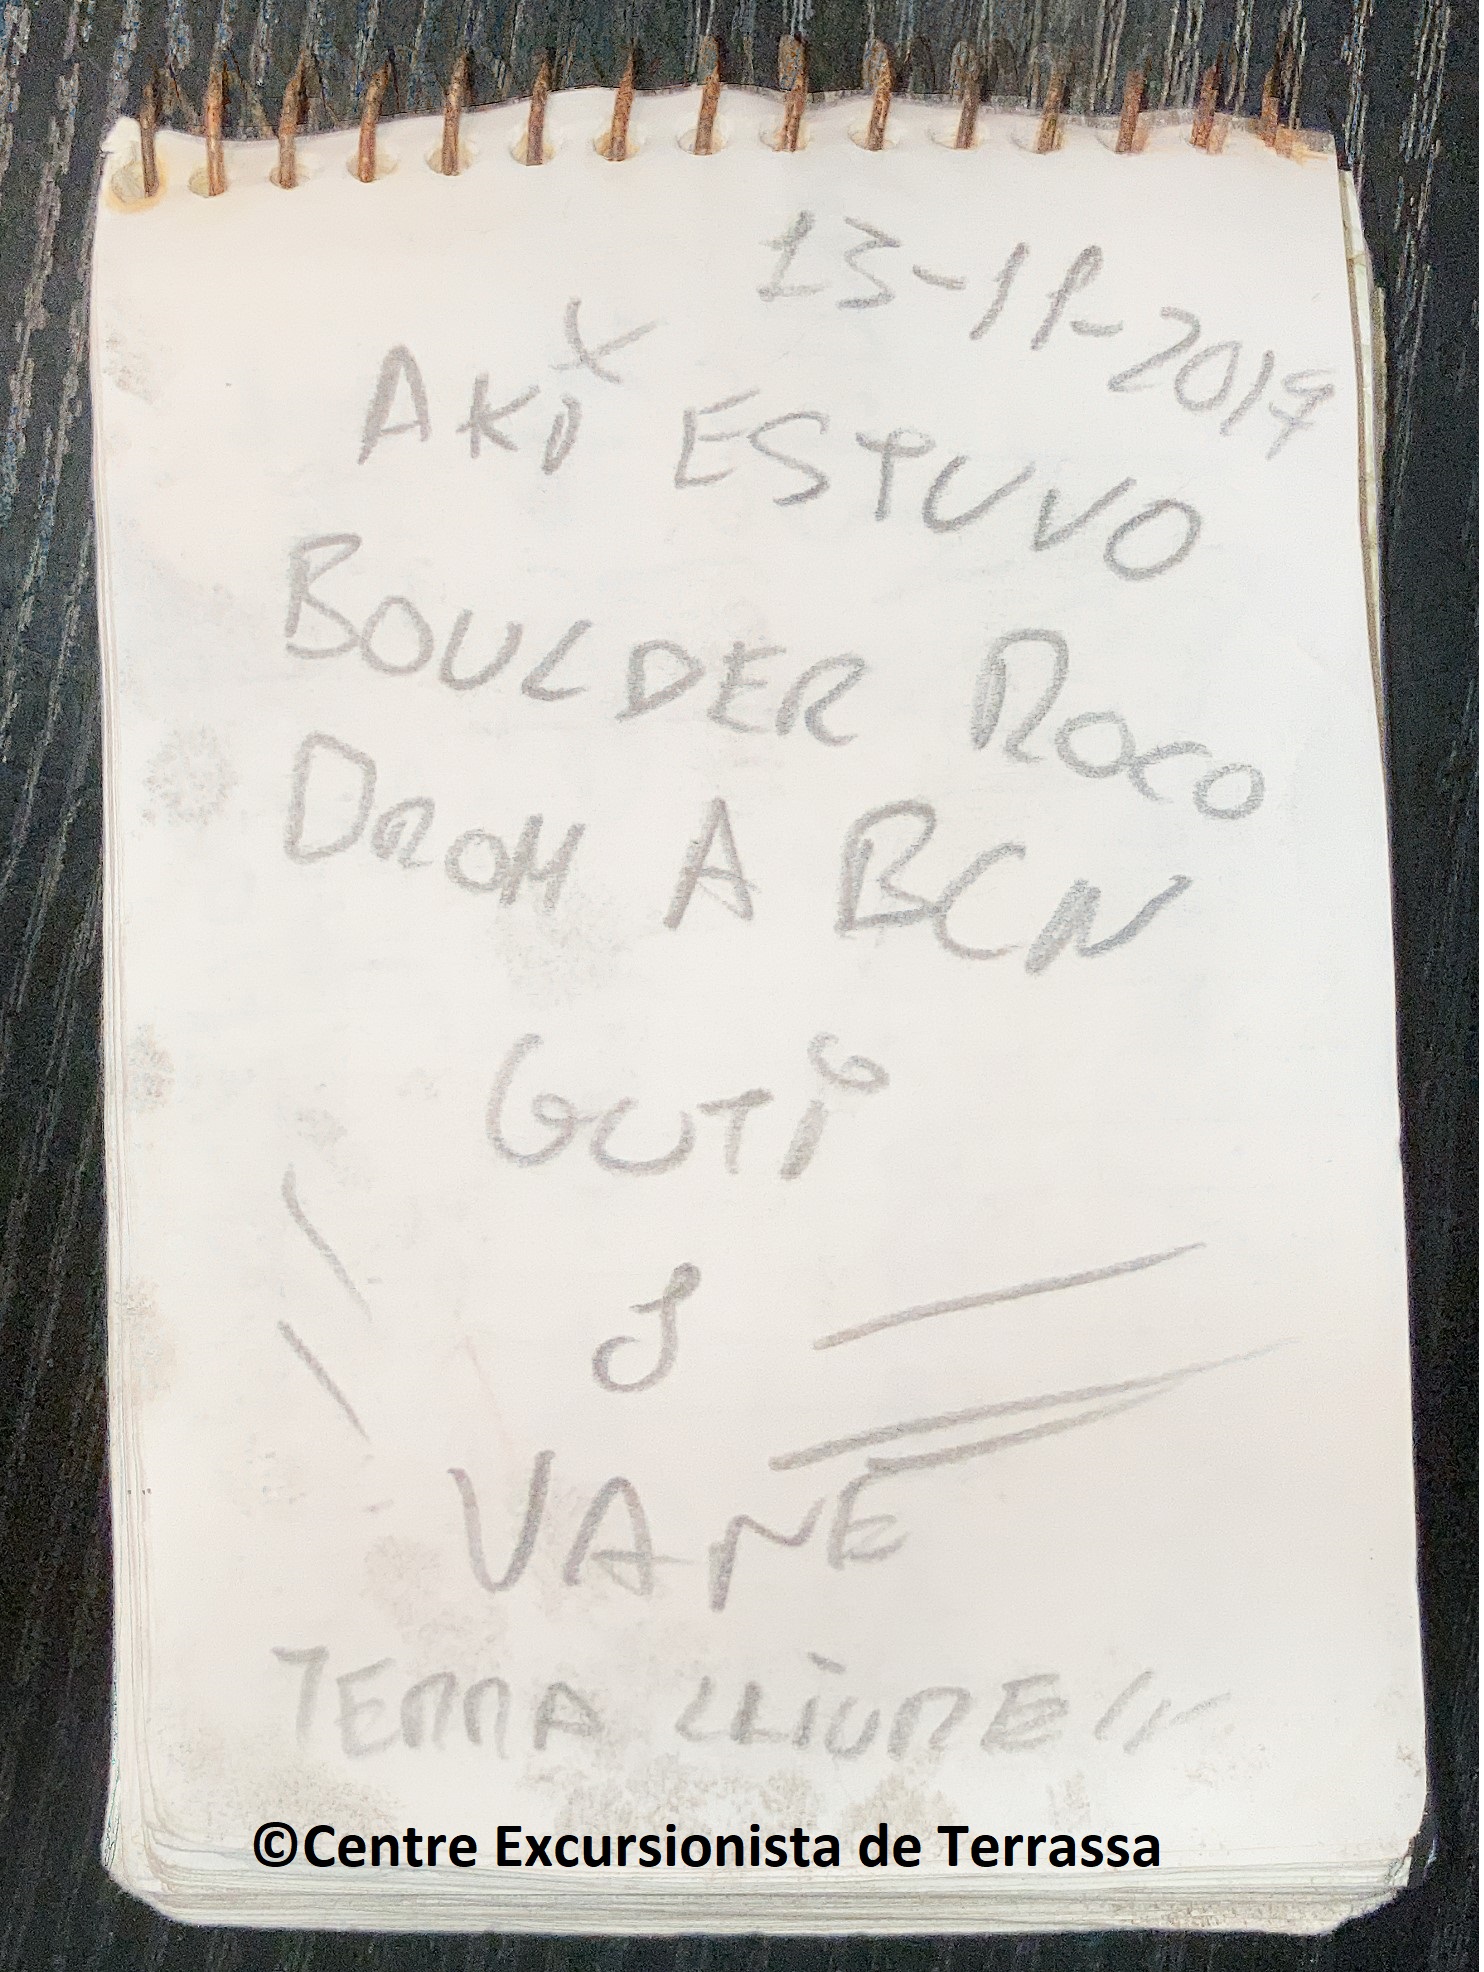 13-11-2019
AKI ESTUVO
BOULDER ROCO
DROM A BCN
GUTI
&
VANE
TERRA LLIURE!!
©Centre Excursionista de Terrassa